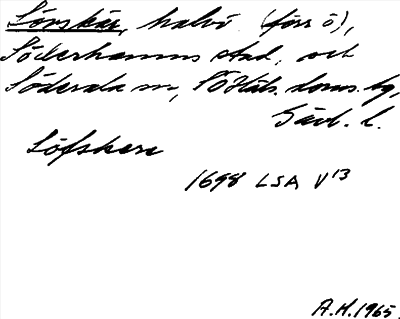 Lövskär, halvö (förr ö),
Söderhamns stad, och
Söderala sn, S Häls. doms. tg,
Gävl. l.
Löfskere
1698 LSA V 13
A.H. 1965.